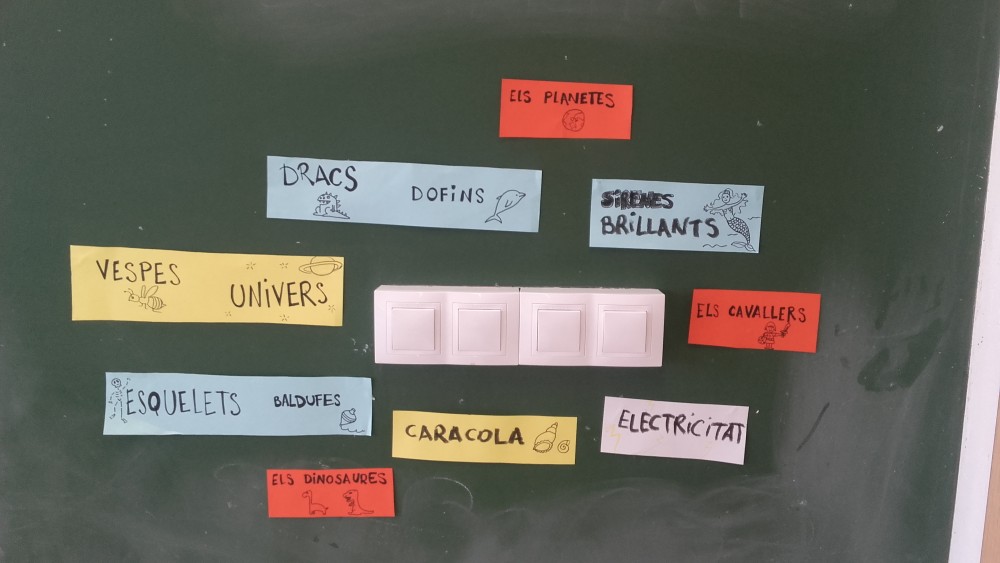 ELS PLANETES
DRACS DOFINS
SIRENES
BRILLANTS
VESPES UNIVERS
ELS CAVALLERS
ESQUELETS BALDUFES
CARACOLA
ELECTRICITAT
ELS DINOSAURES